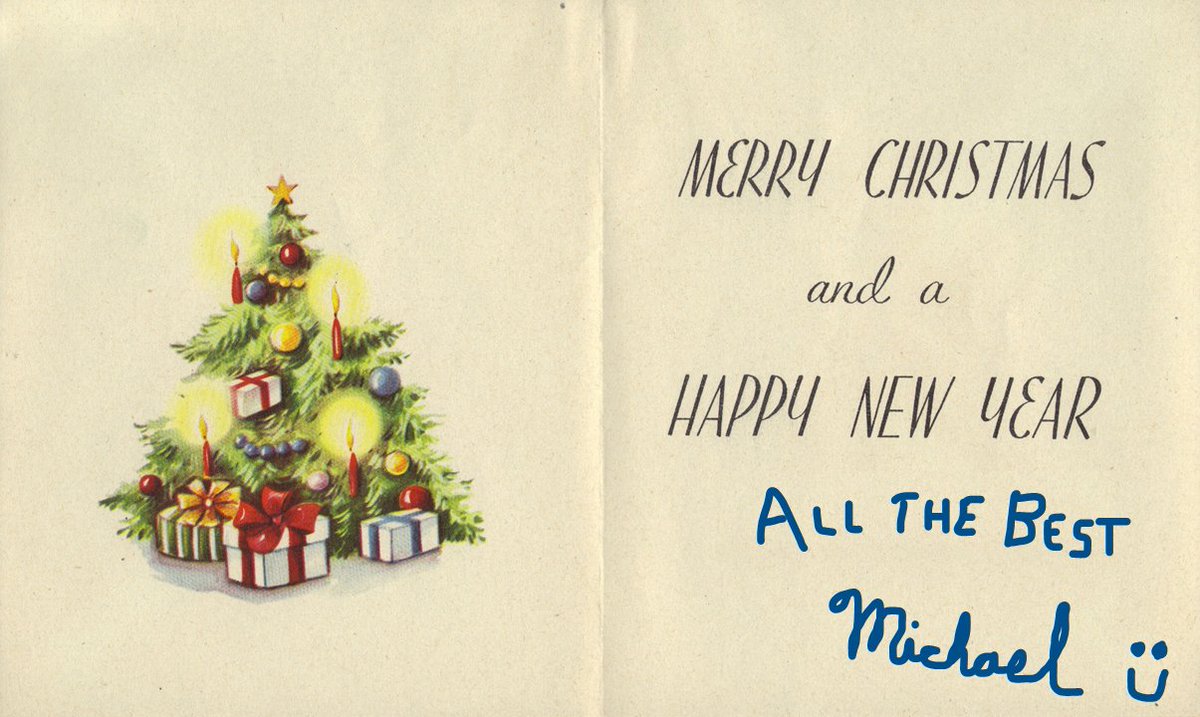 MERRY CHRISTMAS
and a
HAPPY NEW YEAR
ALL THE BEST
Michael